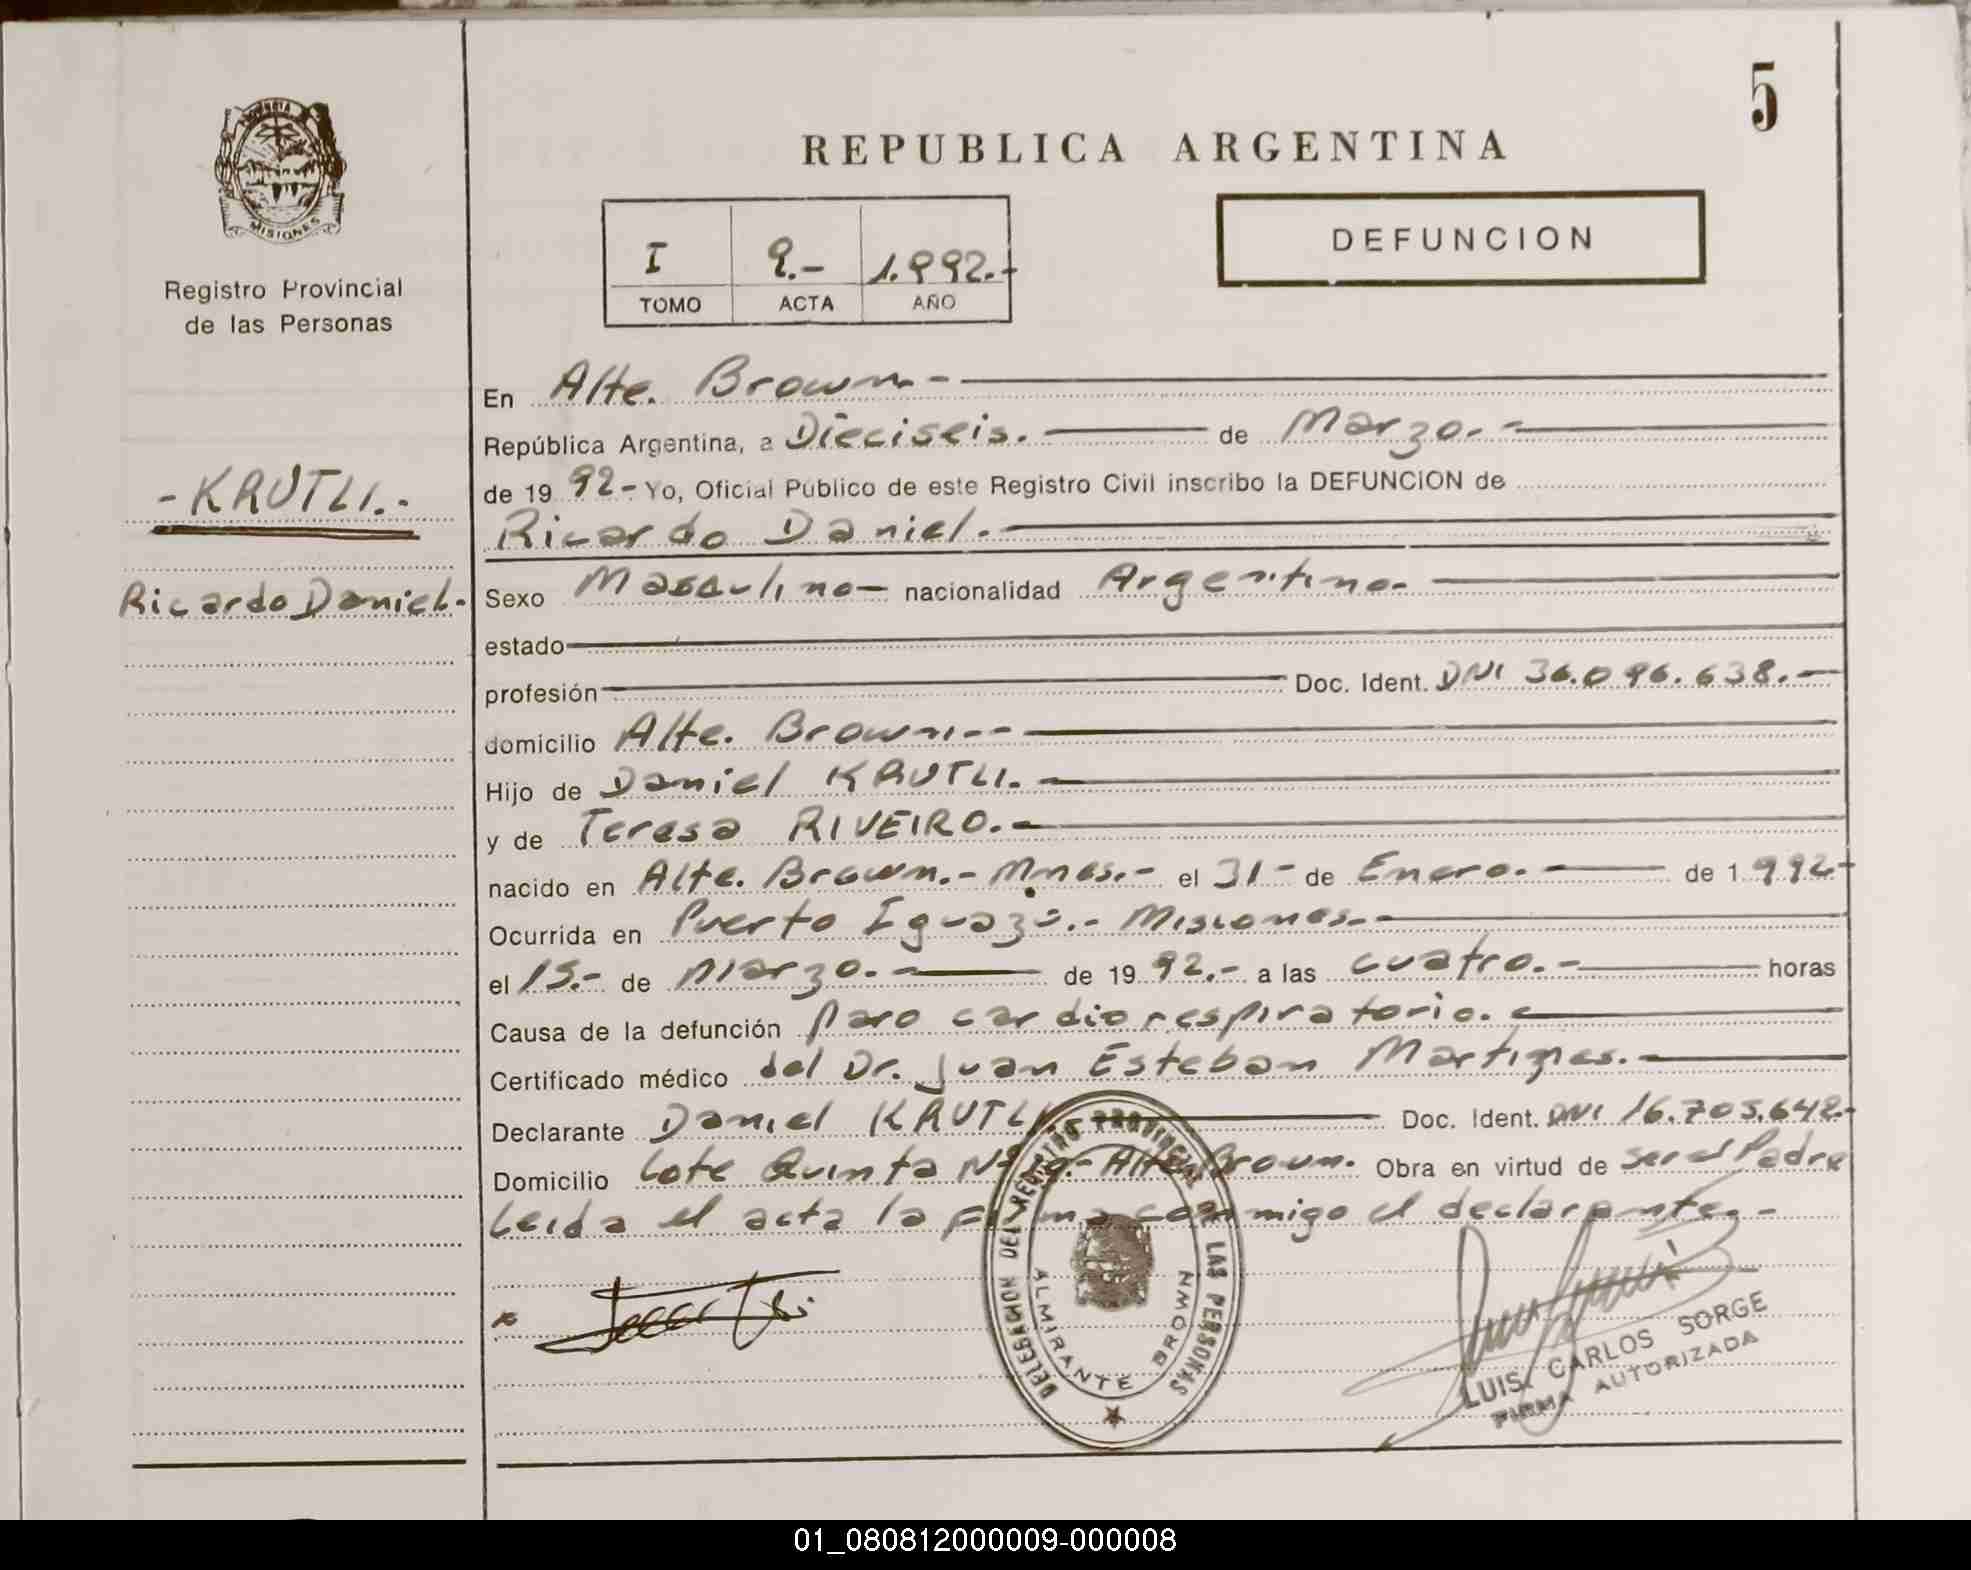 5
PROVINCIA
MISIONES
Registro Provincial
de las Personas
REPUBLICA ARGENTINA
DEFUNCION
I 9.- 1.992.-
TOMO ACTA AÑO
-KRUTLI.-
Ricardo Daniel.-
En Alte. Brown.-
República Argentina, a Dieciseis. de Marzo.-
de 19 92- Yo, Oficial Público de este Registro Civil inscribo la DEFUNCION de
Ricardo Daniel.-
Sexo Masculino- nacionalidad Argentino.-
estado
profesión Doc. Ident. DNI 36.096.638.-
domicilio Alte. Brown.-
Hijo de Daniel KRUTLI.-
y de Teresa RIVEIRO.-
nacido en Alte. Brown.- Mnes.- el 31- de Enero.- de 1.992-
Ocurrida en Puerto Iguazú.- Misiones.-
el 15.- de Marzo.- de 19 92.- a las cuatro.- horas
Causa de la defunción paro cardiorespiratorio.-
Certificado médico del Dr. Juan Esteban Martines.-
Declarante Daniel KRUTLI Doc. Ident. DNI 16.705.642.-
Domicilio Lote Quinta Nº Alte. Brown. Obra en virtud de ser el Padre
Leida el acta la firma conmigo el declarante.-
DELEGACION DEL REGISTRO PROVINCIAL DE LAS PERSONAS
ALMIRANTE BROWN
LUIS CARLOS SORGE
FIRMA AUTORIZADA
01_080812000009-000008